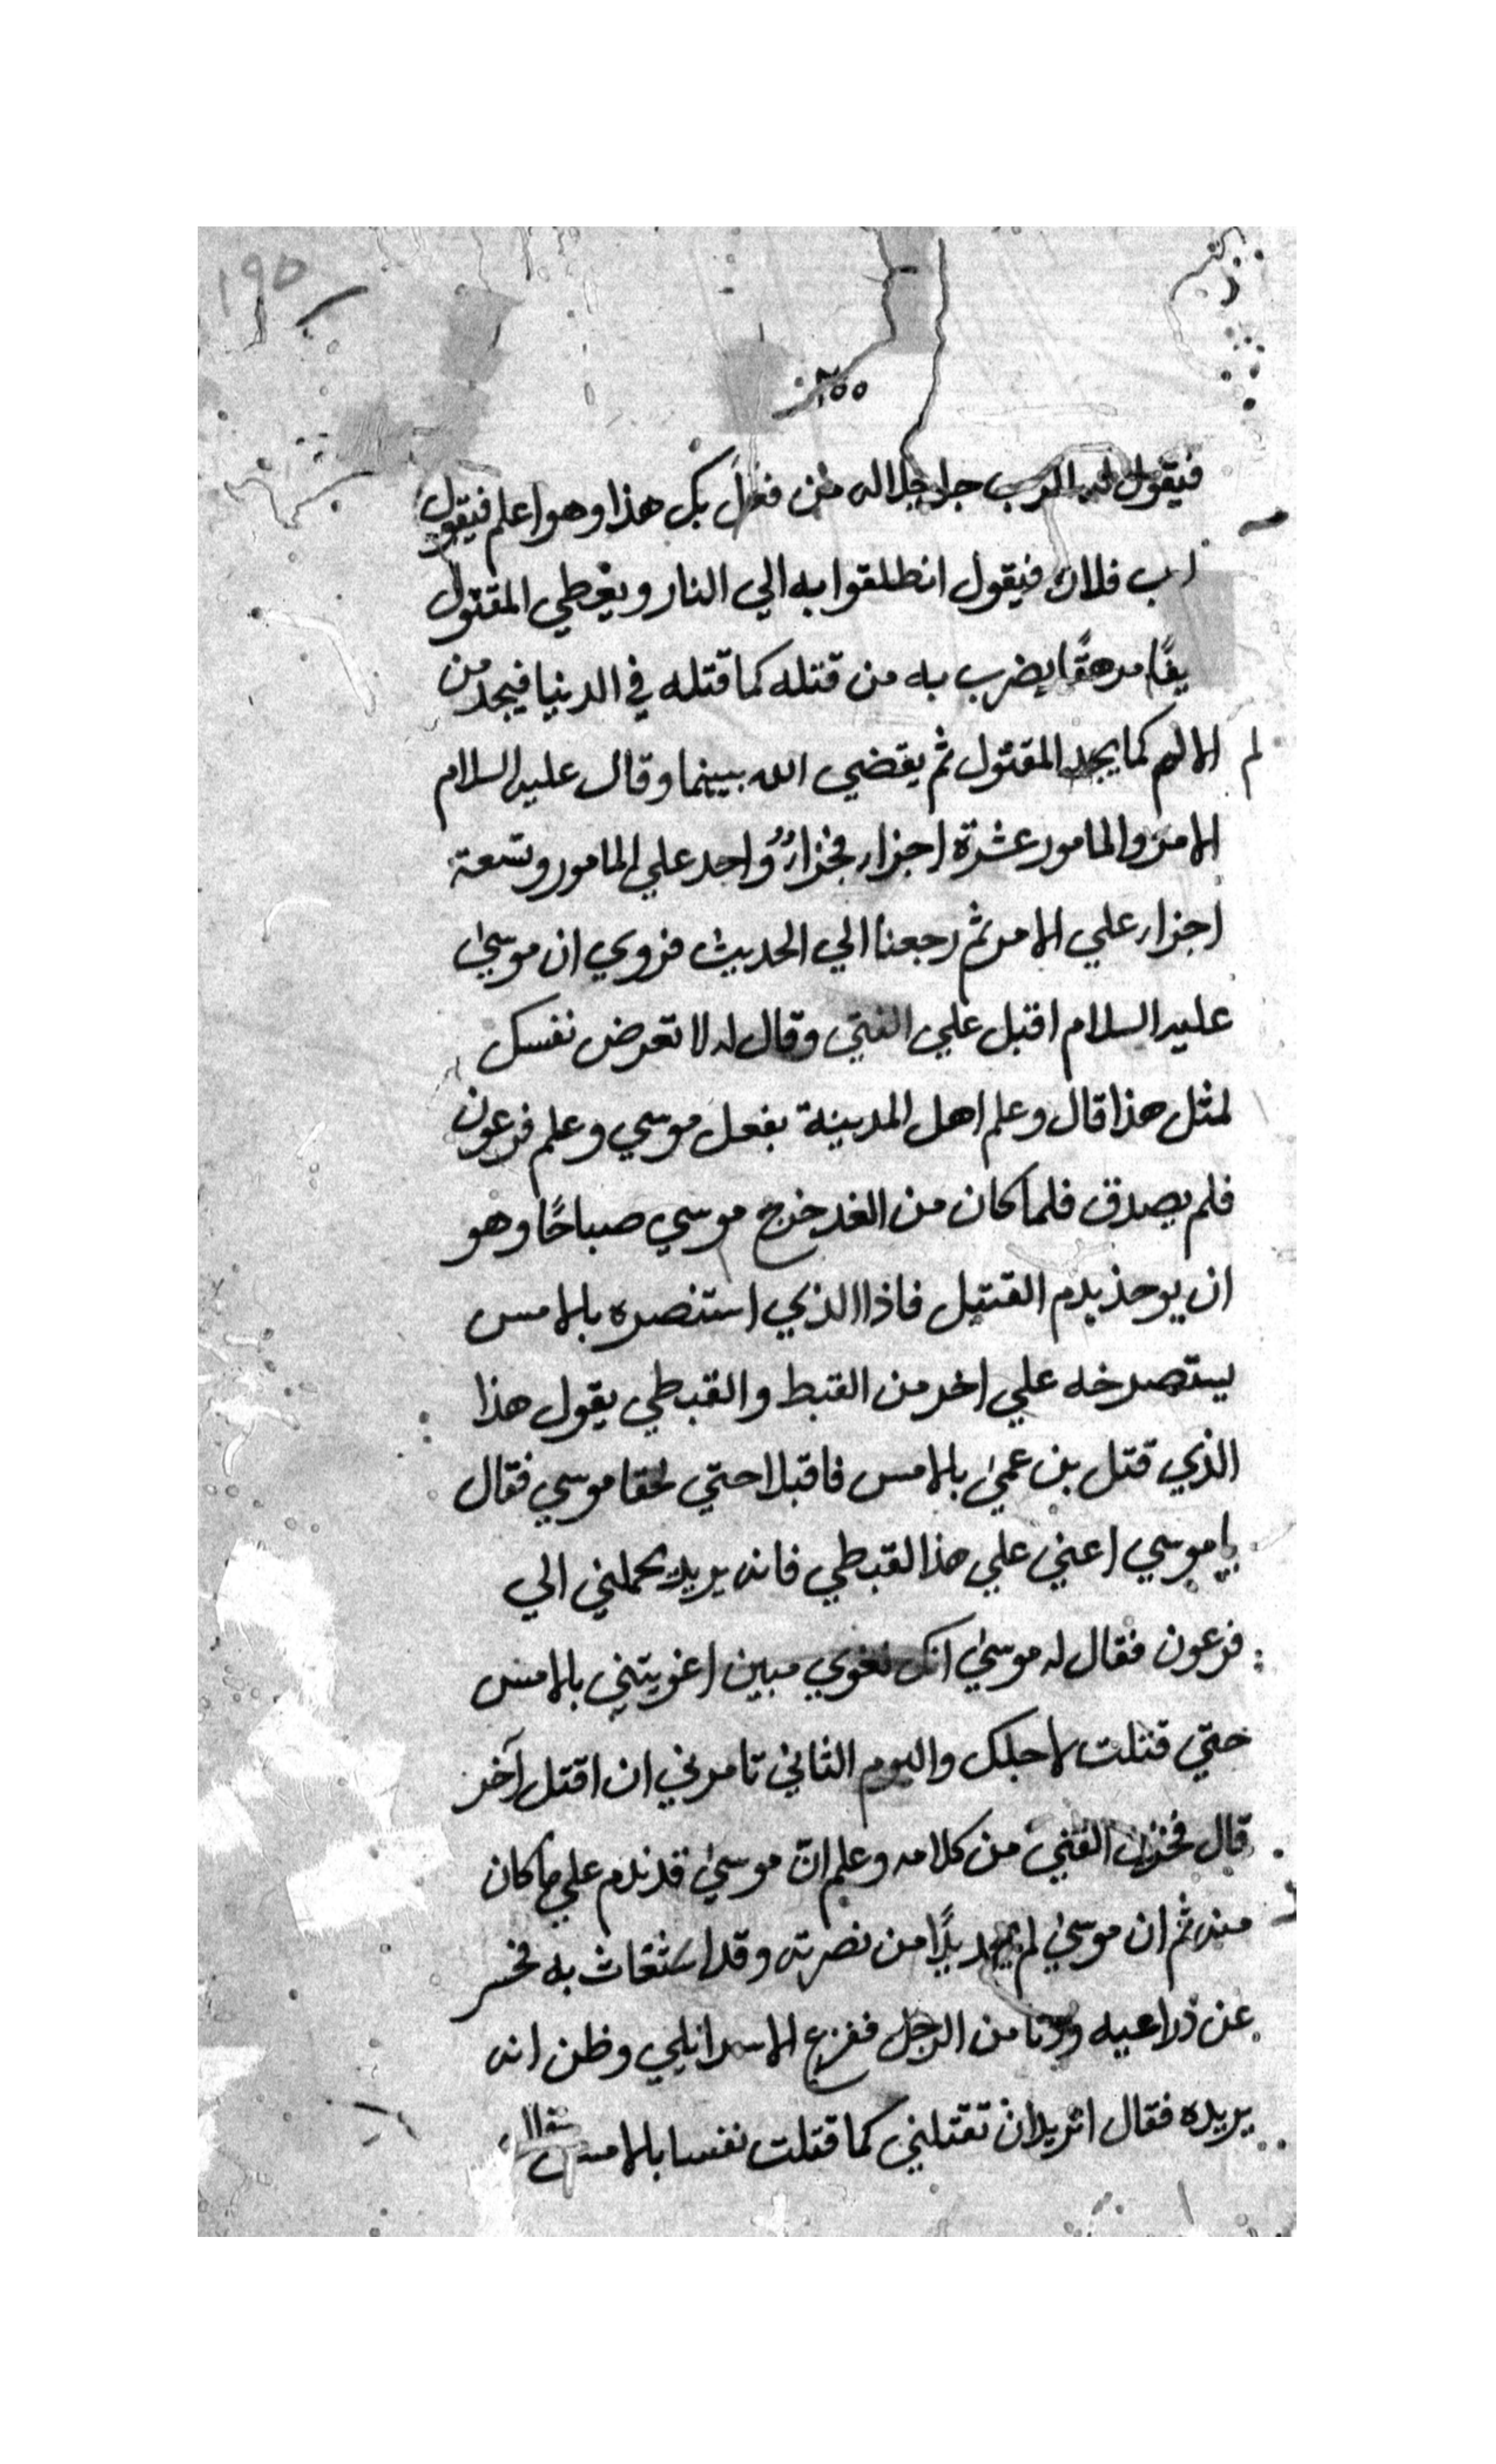 ١٩٥
٢٥٥
فيقول له الرب جل جلاله من فعل بك هذا وهو اعلم فيقول
رب فلان فيقول انطلقوا به الي النار ويعطي المقتول
يفًا مرهقًا يضرب به من قتله كما قتله في الدنيا فيجد من
لم الالم كما يجد المقتول ثم يقضي الله بينهما وقال عليه السلام
الامر والمامور عشرة اجزار فجزارٌ واحد علي المامور وتسعة
اجزار علي الامر ثم رجعنا الي الحديث فروي ان موسي
عليه السلام اقبل علي الفتي وقال له لا تعرض نفسك
لمثل هذا قال وعلم اهل المدينة بفعل موسي وعلم فرعون
فلم يصدق فلما كان من الغد خرج موسي صباحًا وهو
ان يوخذ بدم القتيل فاذا الذي استنصره بالامس
يستصرخه علي اخر من القبط والقبطي يقول هذا
الذي قتل بن عمي بالامس فاقبلا حتي لحقا موسي فقال
يا موسي اعني علي هذا القبطي فانه يريد يحملني الي
فرعون فقال له موسي انك لغوي مبين اغويتني بالامس
حتي قتلت لاجلك واليوم الثاني تامرني ان اقتل آخر
قال فحزن الفتي من كلامه وعلم انّ موسي قد ندم علي ما كان
منه ثم ان موسي لم يجد بدًا من نصرته وقد استغاث به فحسر
عن ذراعيه ودنا من الرجل ففزع الاسرائيلي وظن انه
يريده فقال اتريد ان تقتلني كما قتلت نفسا بالامس